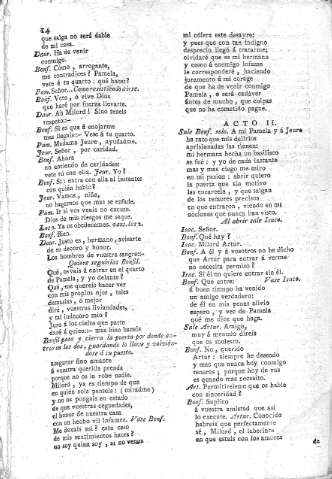 24
que salga no será dable
de mi casa.
Daur. Ha de venir
conmigo.
Bonf. Cómo, arrogante,
me contradices? Pamela,
vete á tu quarto: qué haces?
Pam. Señor...
Bonf. Veto, ó vive Dios
que haré por fuerza llevarte.
Daur. Ah Milord! Sino teneis
respeto...
Bonf. Si es que á enojarme
mas llegais... Vete á tu quarto.
Pam. Madama Jeure, ayudadme.
Jeur. Señor, por caridad.
Bonf. Ahora
no entiendo de caridades:
vete tú con ella. Jeur. Yo?
Bonf. Sí: entra con ella al
con quién hablo?
Jeur. Vamos, niña,
no hagamos que mas se enfade.
Pam. Si á vos venís no
Dios de mis riesgos me saque.
Bonf. Bien.
Daur. Justo es, hermano, avisarte
de mi decoro y honor.
Los hombres de vuestra
Quiere seguirlas Bonf.
Qué, osais á entrar en el quarto
de Pamela, y yo delante?
Qué, que quereis hacer ver
con mis propios ojos, tales
desaires, ó mejor
diré, vuestras liviandades,
y tal infamia más?
Juro á los cielos que parte
daré á quien... una bien
Bonfil pasa y cierra la puerta por donde entraron
las dos, guardando la llave y
dose á su puesto.
asegurar fino amante
á vuestra querida prenda
porque no os la robe nadie.
Milord, ya es tiempo de que
en quien sois penseis: (miradme)
y no os pongais en estado
de que vuestras ceguedades,
el honor de nuestra casa
con un hecho vil infamen. Vase Bonf.
Me dexais así? este caso
de mis sentimientos haces?
no soy quien soy, si no vengo
mi cólera este desayre:
y pues que con tan indigno
desprecio llegó á tratarme;
olvidaré que es mi hermano
y como á enemigo infame
le corresponderé, haciendo
juramento al
de que ha de venir conmigo
Pamela, ó será cadáver
antes de mucho, que culpas
que no ha cometido pague.
ACTO II.
Sale Bonf. solo. A mi Pamela y á Jeure
ha rato que mis delirios
aprisionadas las tienen:
mi hermana hecha un basilisco
se fué: y yo de nada
mas y mas ciego me miro
en mi pasion: abrir quiero
la puerta que sin motivo
las encarcela, y que salgan
de los temores precisos
en que entraron, viendo en mi
acciones que nunca han visto.
Al abrir sale Isac.
Isac. Señor.
Bonf. Qué hay?
Isac. Milord Artur.
Bonf. A él y á vosotros no he dicho
que Artur para entrar á verme
no necesita permiso?
Isac. Sí él no quiere entrar sin él.
Bonf. Que entre: Vase Isac.
á buen tiempo ha venido
un amigo verdadero:
de él en mis penas alivio
espero, y voy de Pamela
qué me dice que haga.
Sale Artur. Amigo,
muy á menudo direis
que os molesto.
Bonf. No, querido
Artur: siempre he deseado
y mas que nunca hoy conmigo
teneros; porque hoy de vos
es quando mas necesito.
Art. Permitireisme que os hable
con sinceridad?
Bonf. Suplico
á vuestra amistad que así
lo execute. Artur. Conocido
habreis que perfectamente
sé, Milord, el laberinto
en que estais con los amores
de